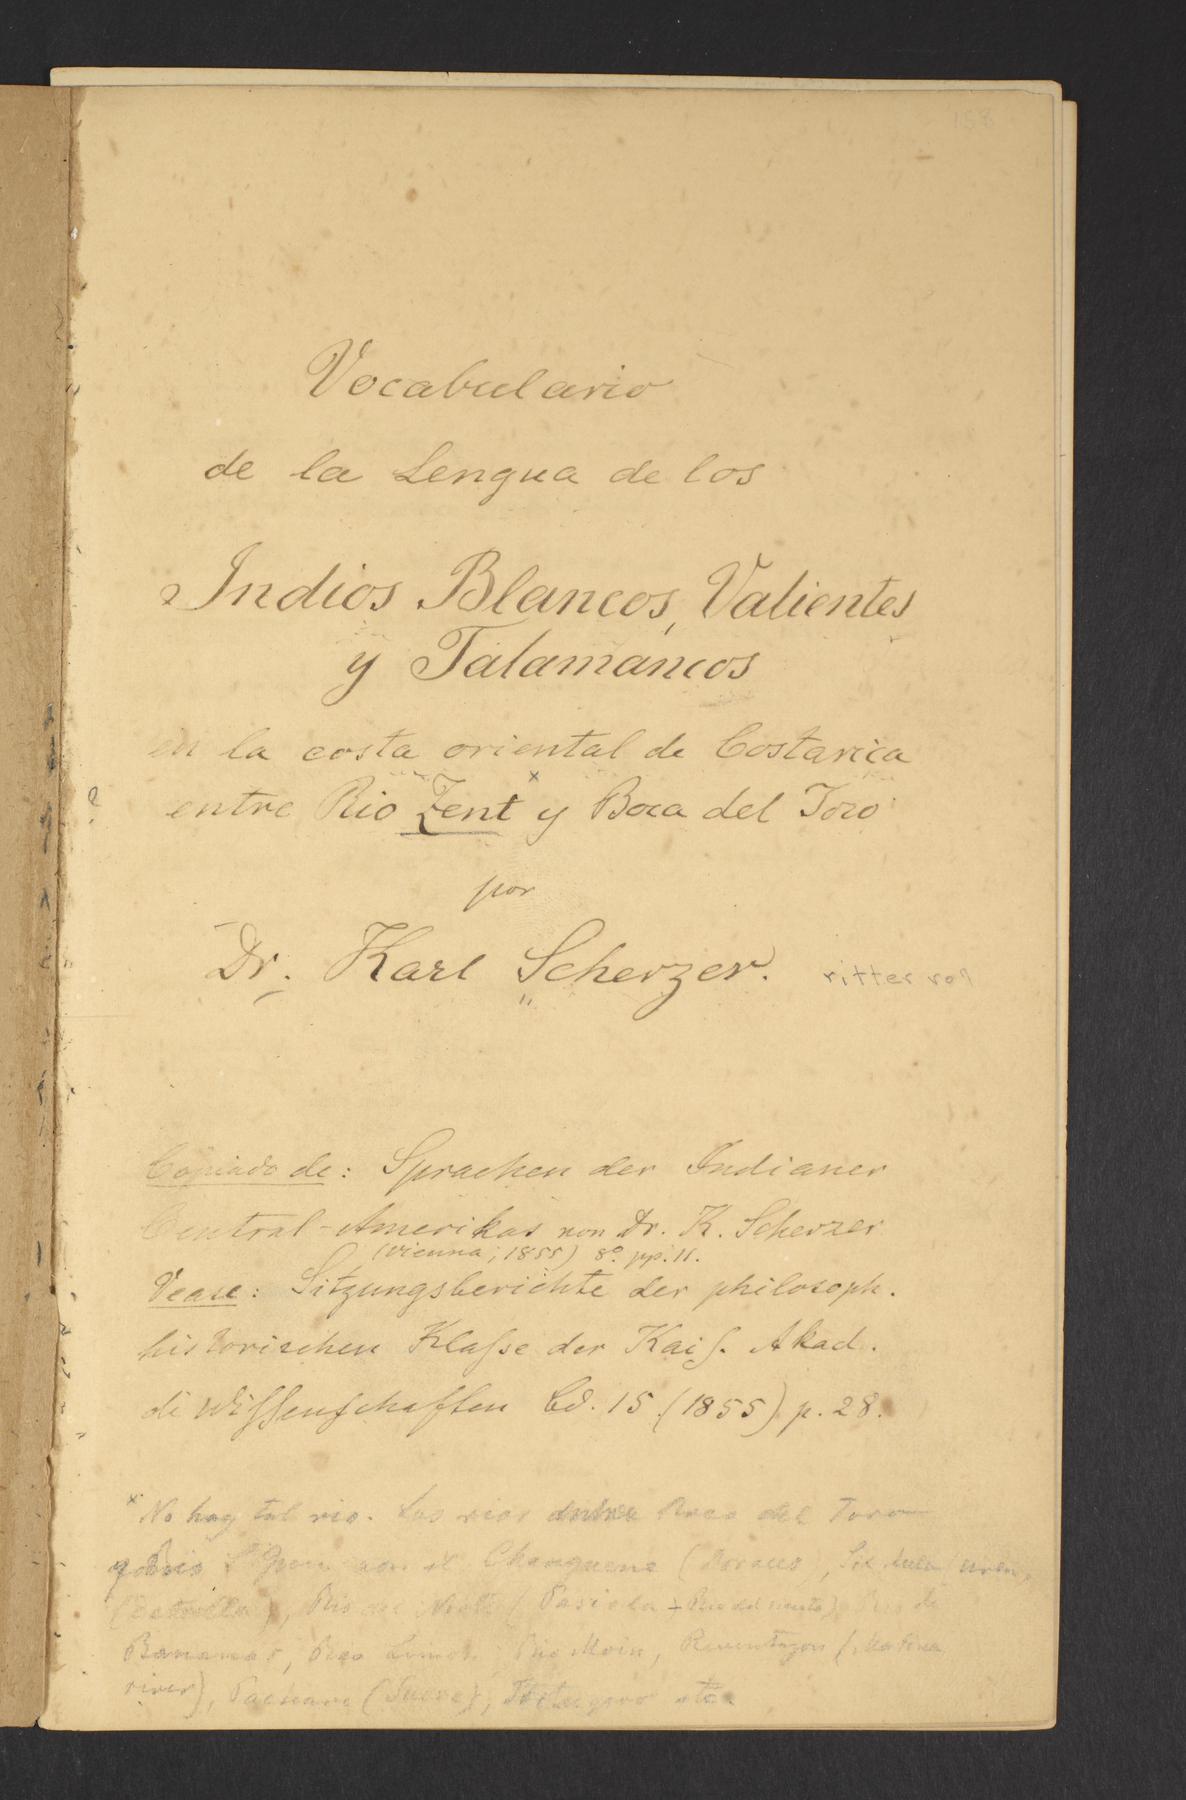 158
Vocabulario
de la Lengua de los
Indios Blancos, Valientes
y Talamancos
en la costa oriental de Costarica
? entre Rio Zent x y Boca del Toro
por
Dr. Karl Scherzer. ritter von
Copiado de: Sprachen der Indianer
Central-Amerikas von Dr. K. Scherzer
(Vienna; 1855) 8º pp. 11.
Vease: Sitzungsberichte der philosoph.
historischen Klaſse der Kaiſ. Akad.
di Wiſſenſchaften Bd. 15 (1855) p. 28.
x No hay tal rio. Los rios entre Boca del Toro
y Rio el Changuene (Doraces,
(Estrella), Rio del Norte Rio de
Bananas, Rio Limon Rio Moin, Reventazon (Matina
river), Pacuare (Suere), etc.